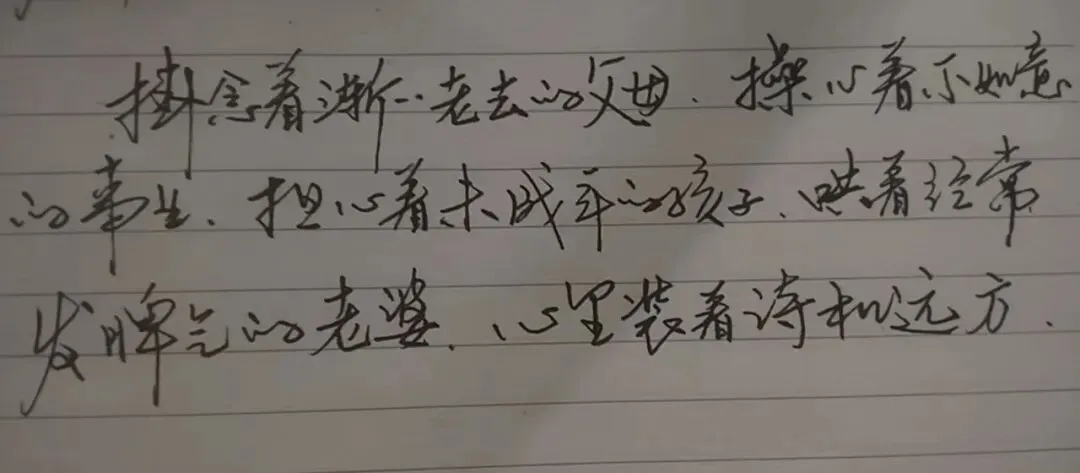 掛念着渐渐老去的父母、操心着不如意
的事业、担心着未成年的孩子、哄着经常
发脾气的老婆、心里装着诗和远方.